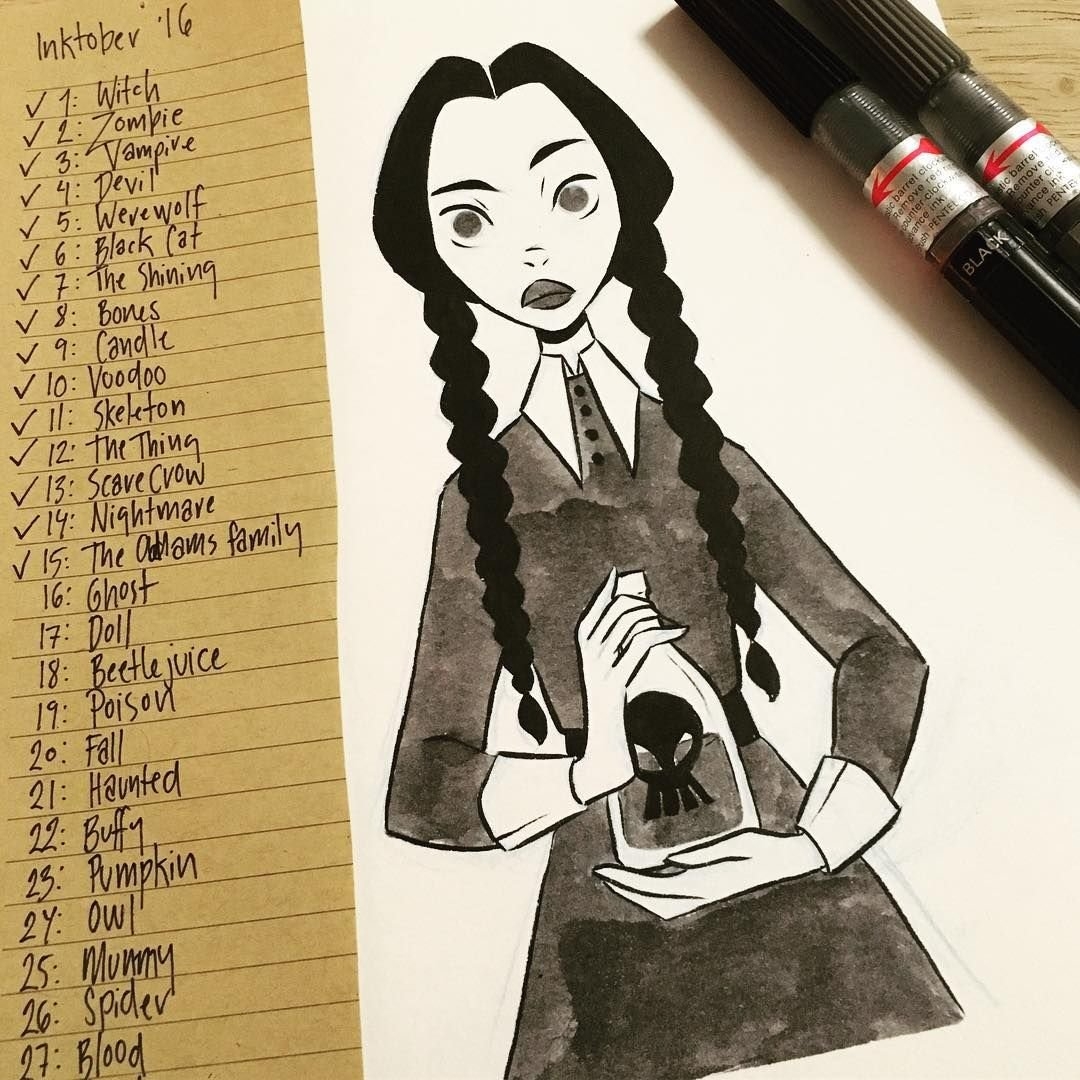 Inktober '16
✓ 1: Witch
✓ 2: Zombie
✓ 3: Vampire
✓ 4: Devil
✓ 5: Werewolf
✓ 6: Black Cat
✓ 7: The Shining
✓ 8: Bones
✓ 9: Candle
✓ 10: Voodoo
✓ 11: Skeleton
✓ 12: The Thing
✓ 13: ScareCrow
✓ 14: Nightmare
✓ 15: The Addams family
16: Ghost
17: Doll
18: Beetlejuice
19: Poison
20: Fall
21: Haunted
22: Buffy
23: Pumpkin
24: Owl
25: Mummy
26: Spider
27: Blood
barrel
Remove red
counter clock
ink
PENTE
BLACK
barrel
Remove
PEN